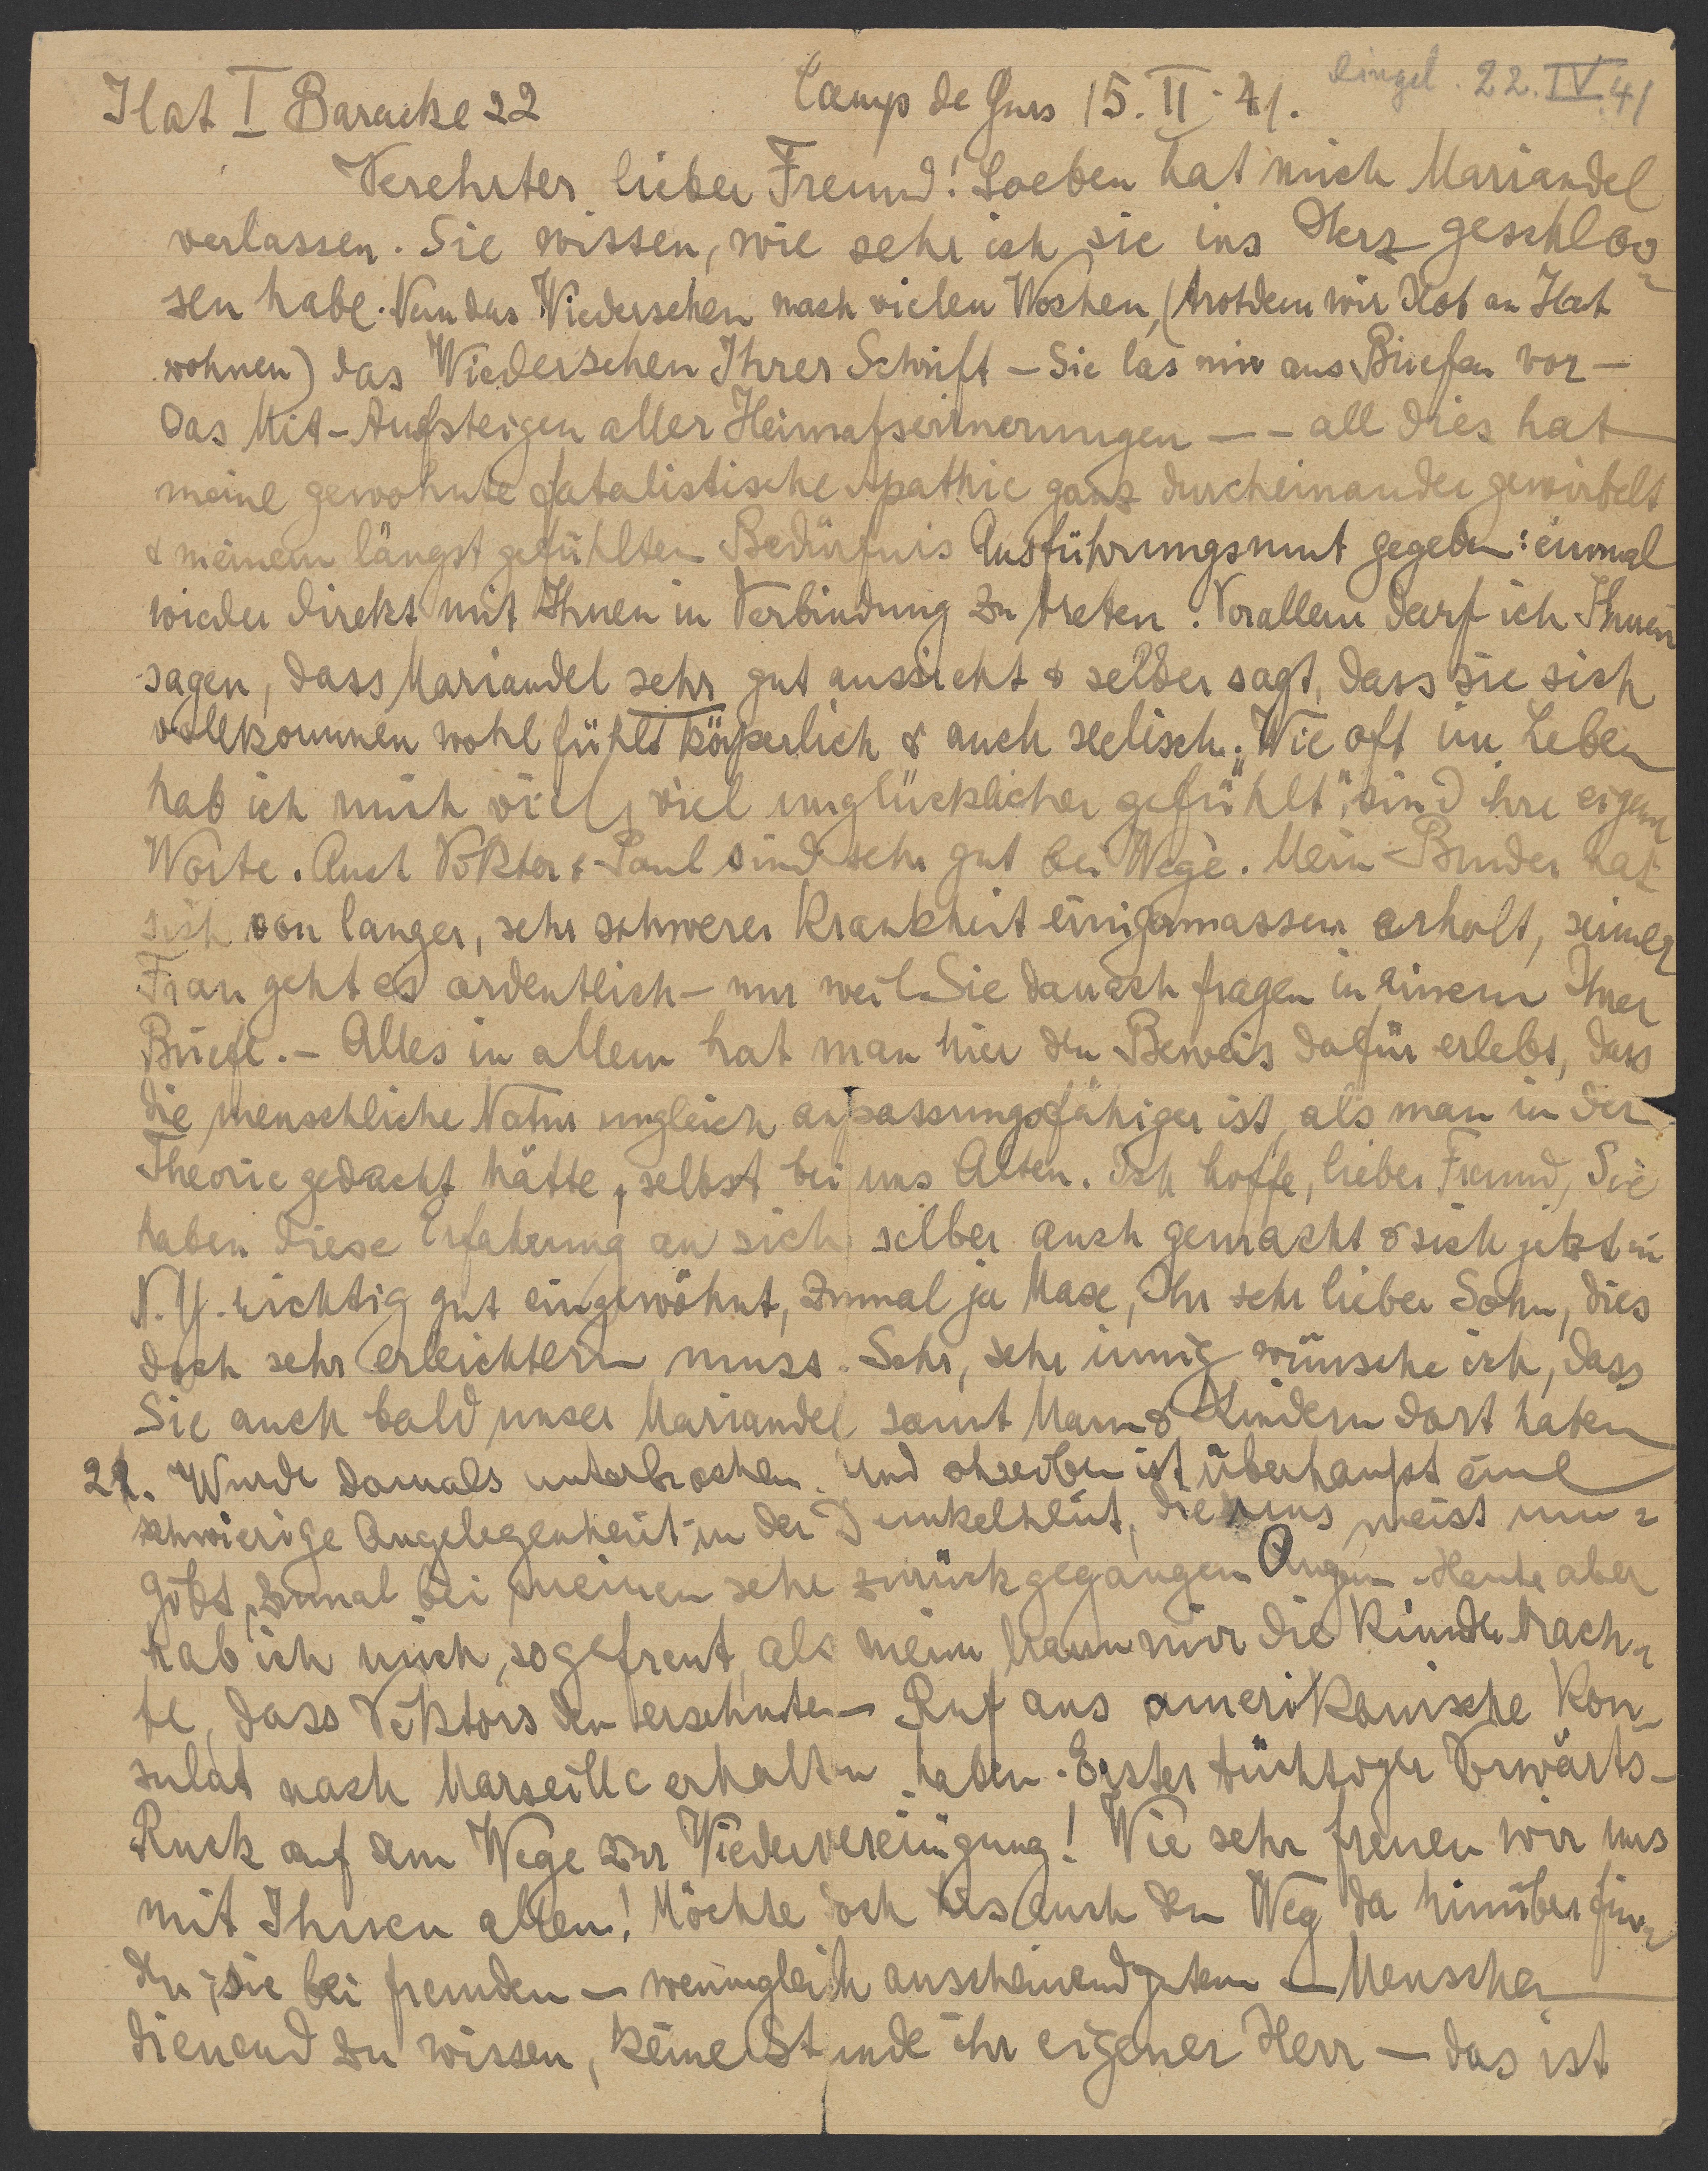 Ilot I Baracke 22 Camp de Gurs 15. II. 41. eingel. 22. IV. 41
Verehrter lieber Freund! Soeben hat mich Mariandel
verlassen. Sie wissen, wie sehr ich sie ins Herz geschlos-
sen habe. Nun das Wiedersehen nach vielen Wochen, (trotdem wir Ilot an Ilot
wohnen) das Wiedersehen Ihrer Schrift – Sie las mir aus Briefen vor –
Das Mit-Aufsteigen aller Heimatserinnerungen – – all dies hat
meine gewohnte fatalistische Apathie ganz durcheinander gewirbelt
& meinem längst gefühlten Bedürfnis Ausführungsmut gegeben: einmal
wieder direkt mit Ihnen in Verbindung zu treten. Vorallem darf ich Ihnen
sagen, dass Mariandel sehr gut aussieht & selber sagt, dass sie sich
vollkommen wohl fühlt körperlich & auch seelisch. „Wie oft im Leben
hab ich mich viel, viel unglücklicher gefühlt", sind ihre eigene
Worte. Auch Viktor & Paul sind sehr gut bei Wege. Mein Bruder hat
sich von langer, sehr schwerer Krankheit einigermassen erholt, seiner
Frau geht es ordentlich – nur weil Sie danach fragen in einem Ihrer
Briefe. – Alles in allem hat man hier den Beweis dafür erlebt, dass
die menschliche Natur ungleich anpassungsfähiger ist, als man in der
Theorie gedacht hätte, selbst bei uns Alten. Ich hoffe, lieber Freund, Sie
haben diese Erfahrung an sich selber auch gemacht & sich jetzt in
N.Y. richtig gut eingewöhnt, zumal ja Max, Ihr sehr lieber Sohn, dies
doch sehr erleichtern muss. Sehr, sehr innig wünsche ich, dass
Sie auch bald unser Mariandel samt Mann & Kindern dort haben
22. Wurde damals unterbrochen. Und schreiben ist überhaupt eine
schwierige Angelegenheit in der Dunkelheit, die uns meist um-
gibt, zumal bei meinen sehr zurückgegangen Augen. Heute aber
hab ich mich so gefreut, als mein Mann mir die Kunde brach-
te, dass Viktors den ersehnten Ruf ans amerikanische Kon-
sulat nach Marseille erhalten haben. Erster tüchtiger Vorwärts-
Ruck auf dem Wege zur Wiedervereinigung! Wie sehr freuen wir uns
mit Ihnen allen! Möchte doch auch den Weg da hinüber fin-
den; sie bei fremden – wenngleich anscheinend guten – Menschen
dienend zu wissen, keine Stunde ihr eigener Herr – das ist